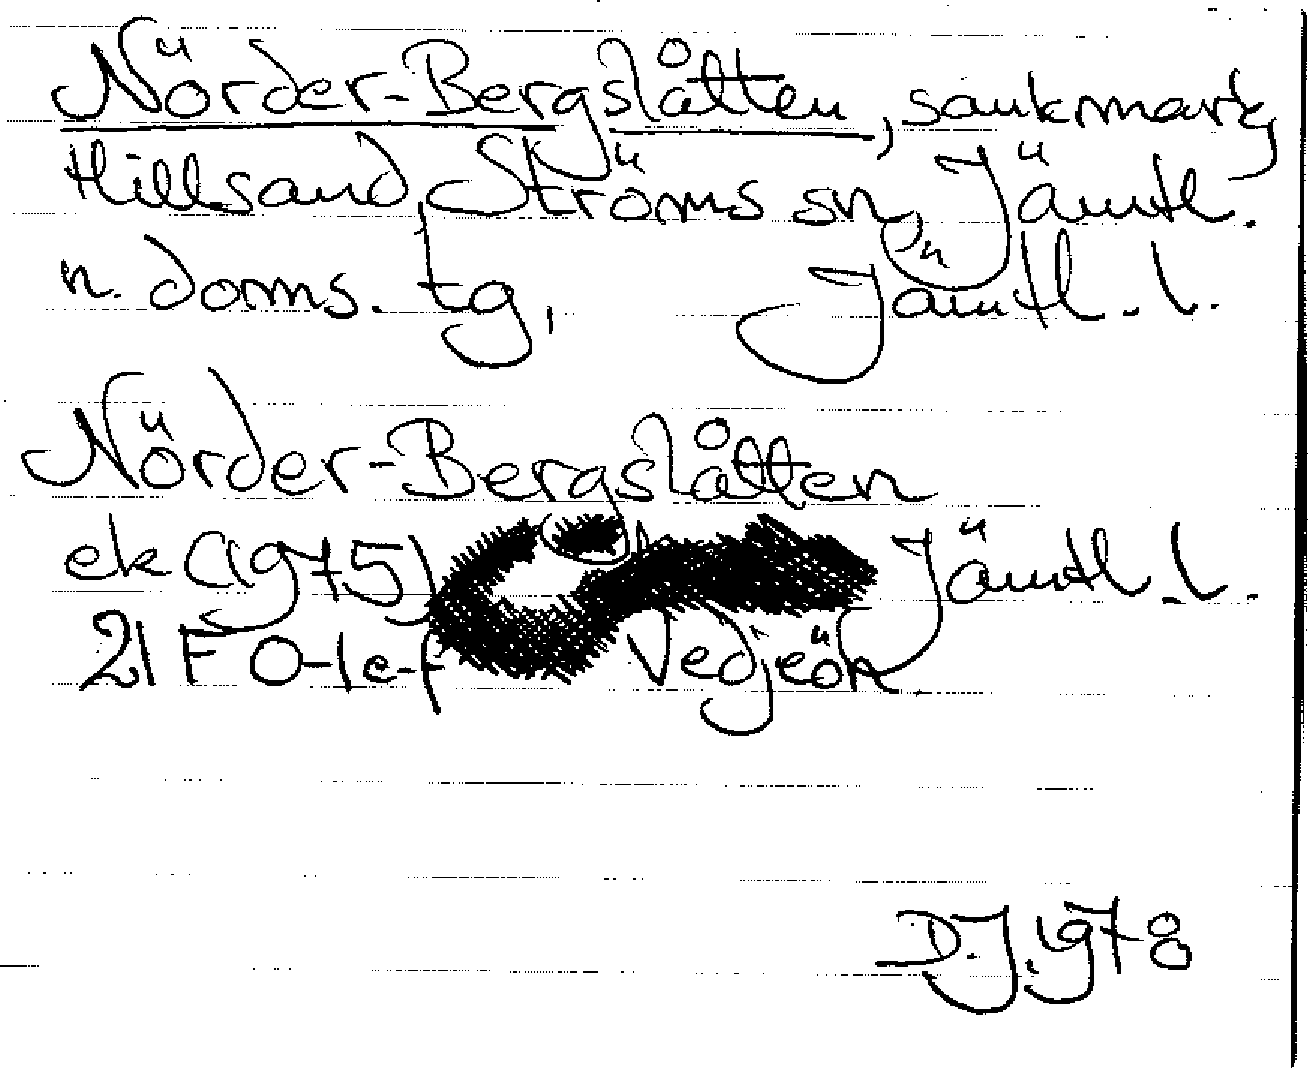 Nörder-Bergslåtten, sankmark
Hillsand, Ströms sn, Jämtl.
n. doms. tg, Jämtl. l.
Nörder-Bergslåtten
ek (1975) Jämtl. l.
21 F 0-1 e-f Vedjeön
D.J. 1978